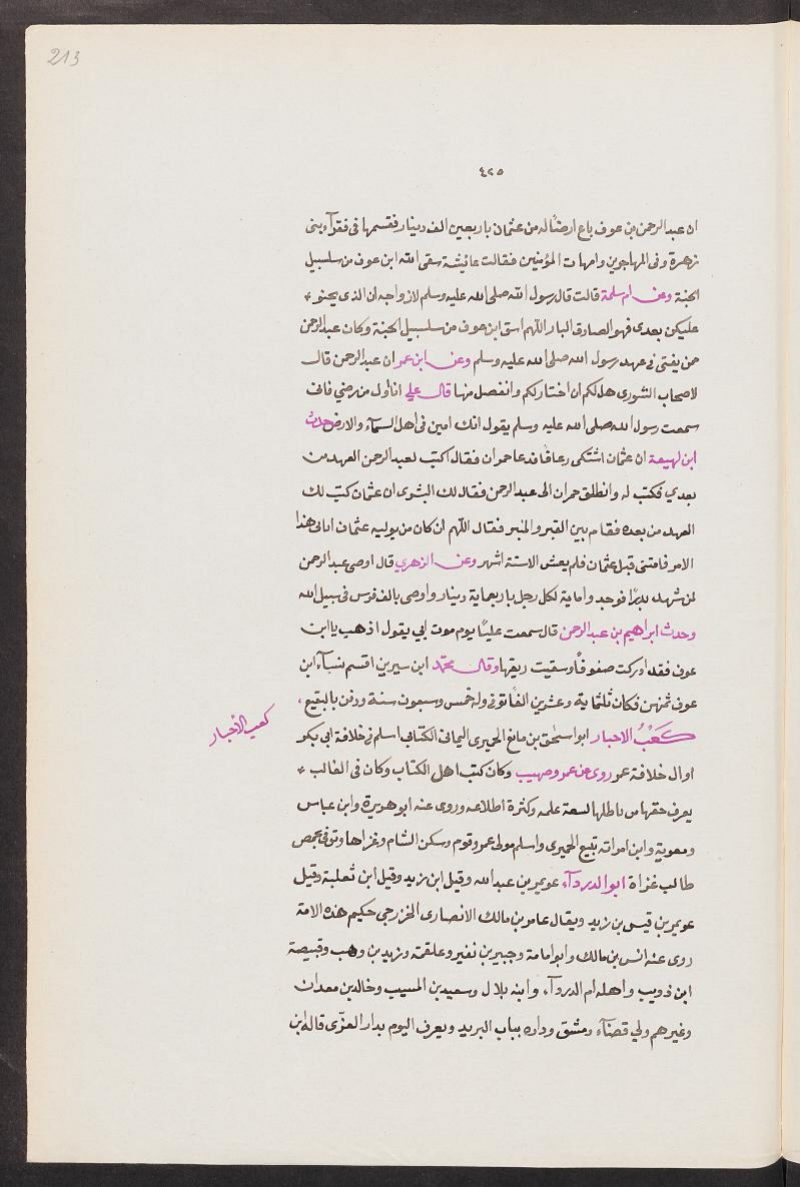 213
٤٢٥
ان عبد الرحمن بن عوف باع ارضًا له من عثمان باربعين الف دينار فقسمها فى فقرآء بنى
زهرة وفى المهاجرين وامهات المؤمنين فقالت عائيشة سقى الله ابن عوف من سلسبيل
الجنة وعن ام سلمة قالت قال رسول الله صلى الله عليه وسلم لازواجه ان الذى يحنو *
عليكن بعدى فهو الصادق البار اللهم اسق ابن عوف من سلسبيل الجنة وكان عبد الرحمن
ممن يفتى فى عهد رسول الله صلى الله عليه وسلم وعن ابن عمر ان عبد الرحمن قال
لاصحاب الشورى هل لكم ان اختار لكم وانفصل منها قال علي انا اول من رضي فانى
سمعت رسول الله صلى الله عليه وسلم يقول انك امين فى اهل السمآء والارض حدث
ابن لهيعة ان عثمان اشتكى رعافًا فدعا حمران فقال اكتب لعبد الرحمن العهد من
بعدي فكتب له وانطلق حمران الى عبد الرحمن فقال لك البشوى ان عثمان كتب لك
العهد من بعده فقام بين القبر والمنبر فقال اللهم ان كان من يوليه عثمان اياى هذا
الامر فامتنى قبل عثمان فلم يعش الا ستة اشهر وعن الزهري قال اوصى عبد الرحمن
لمن شهد بدرًا فوجدوا ماية لكل رجل باربعماية دينار واوصى بالف فرس فى سبيل الله
وحدث ابراهيم بن عبد الرحمن قال سمعت عليًا يوم موت ابي يقول اذهب يا ابن
عوف فقد ادركت صفوفًا وسقيت ريقها وقال محمد ابن سيرين اقتسم نسآء ابن
عوف ثمنهن فكان ثلثماية وعشرين الفًا توفى وله خمس وسبعون سنة ودفن بالبقيع
كَعْبُ الاحبار ابو اسحٰق بن ماتع الحميرى اليمانى الكتابى اسلم فى خلافة ابى بكر
كعب الأحبار
اوال خلافة عمر روى عن عمر وصهيب وكان كتب اهل الكتاب وكان فى الغالب *
يعرف حقها من باطلها لسعة علمه وكثرة اطلاعه وروى عنه ابو هريرة وابن عباس
ومعوية وابن امراته تبيع الحميرى واسلم مولى عمر وقوم وسكن الشام وغزاها وتوفى بحمص
طالب غزاة ابو الدردآء عويمر بن عبد الله وقيل ابن زيد وقيل ابن ثعلبة وقيل
عويمر بن قيس بن زيد ويقال عامر بن مالك الانصارى الخزرجي حكيم هذه الامة
روى عنه انس بن مالك وابو امامة وجبير بن نفير وعلقمة وزيد بن وهب وقبيصة
ابن ذويب واهله ام الدردآء وابنه بلال وسعيد بن المسيب وخالد بن معدان
وغيرهم ولي قضآء دمشق وداره بباب البريد ويعرف اليوم بدار العزّى قاله ابن